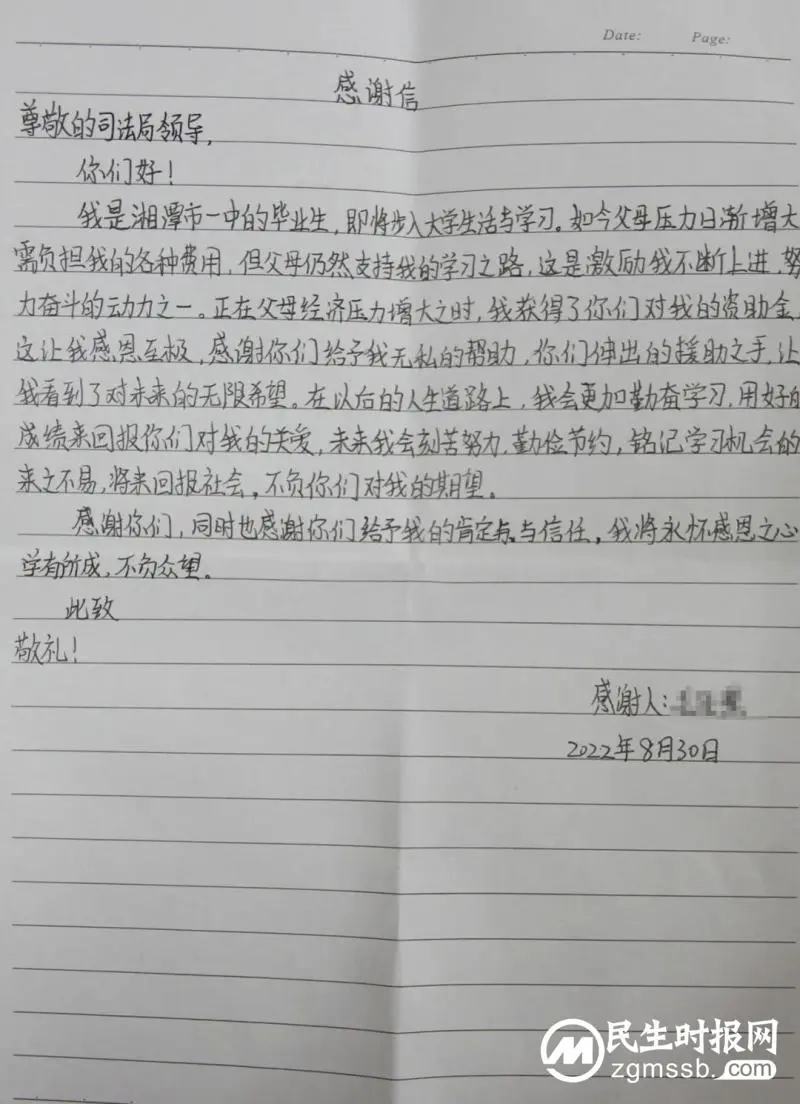 Date: Page:
感谢信
尊敬的司法局领导,
你们好!
我是湘潭市一中的毕业生,即将步入大学生活与学习。如今父母压力日渐增大
需负担我的各种费用,但父母仍然支持我的学习之路,这是激励我不断上进,努
力奋斗的动力之一。正在父母经济压力增大之时,我获得了你们对我的资助金,
这让我感恩至极,感谢你们给予我无私的帮助,你们伸出的援助之手,让
我看到了对未来的无限希望。在以后的人生道路上,我会更加勤奋学习,用好的
成绩来回报你们对我的关爱,未来我会刻苦努力,勤俭节约,铭记学习机会的
来之不易,将来回报社会,不负你们对我的期望。
感谢你们,同时也感谢你们给予我的肯定与信任,我将永怀感恩之心
学有所成,不负众望。
此致
敬礼!
感谢人:
2022年8月30日
民生时报网
zgmssb.com